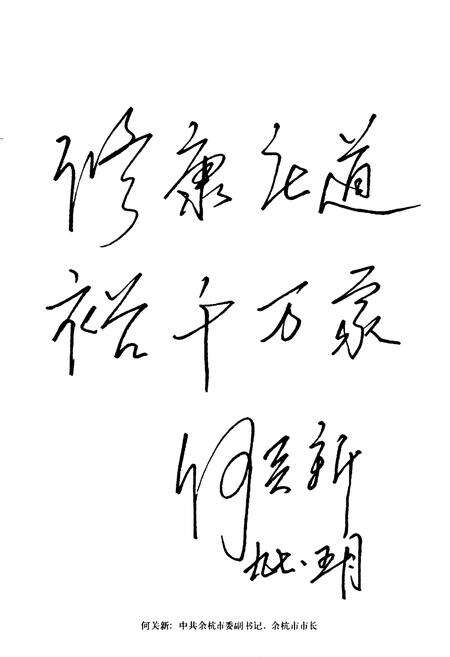 修康庄道
裕千万家
何关新
九七.五月
何关新：中共余杭市委副书记、余杭市市长